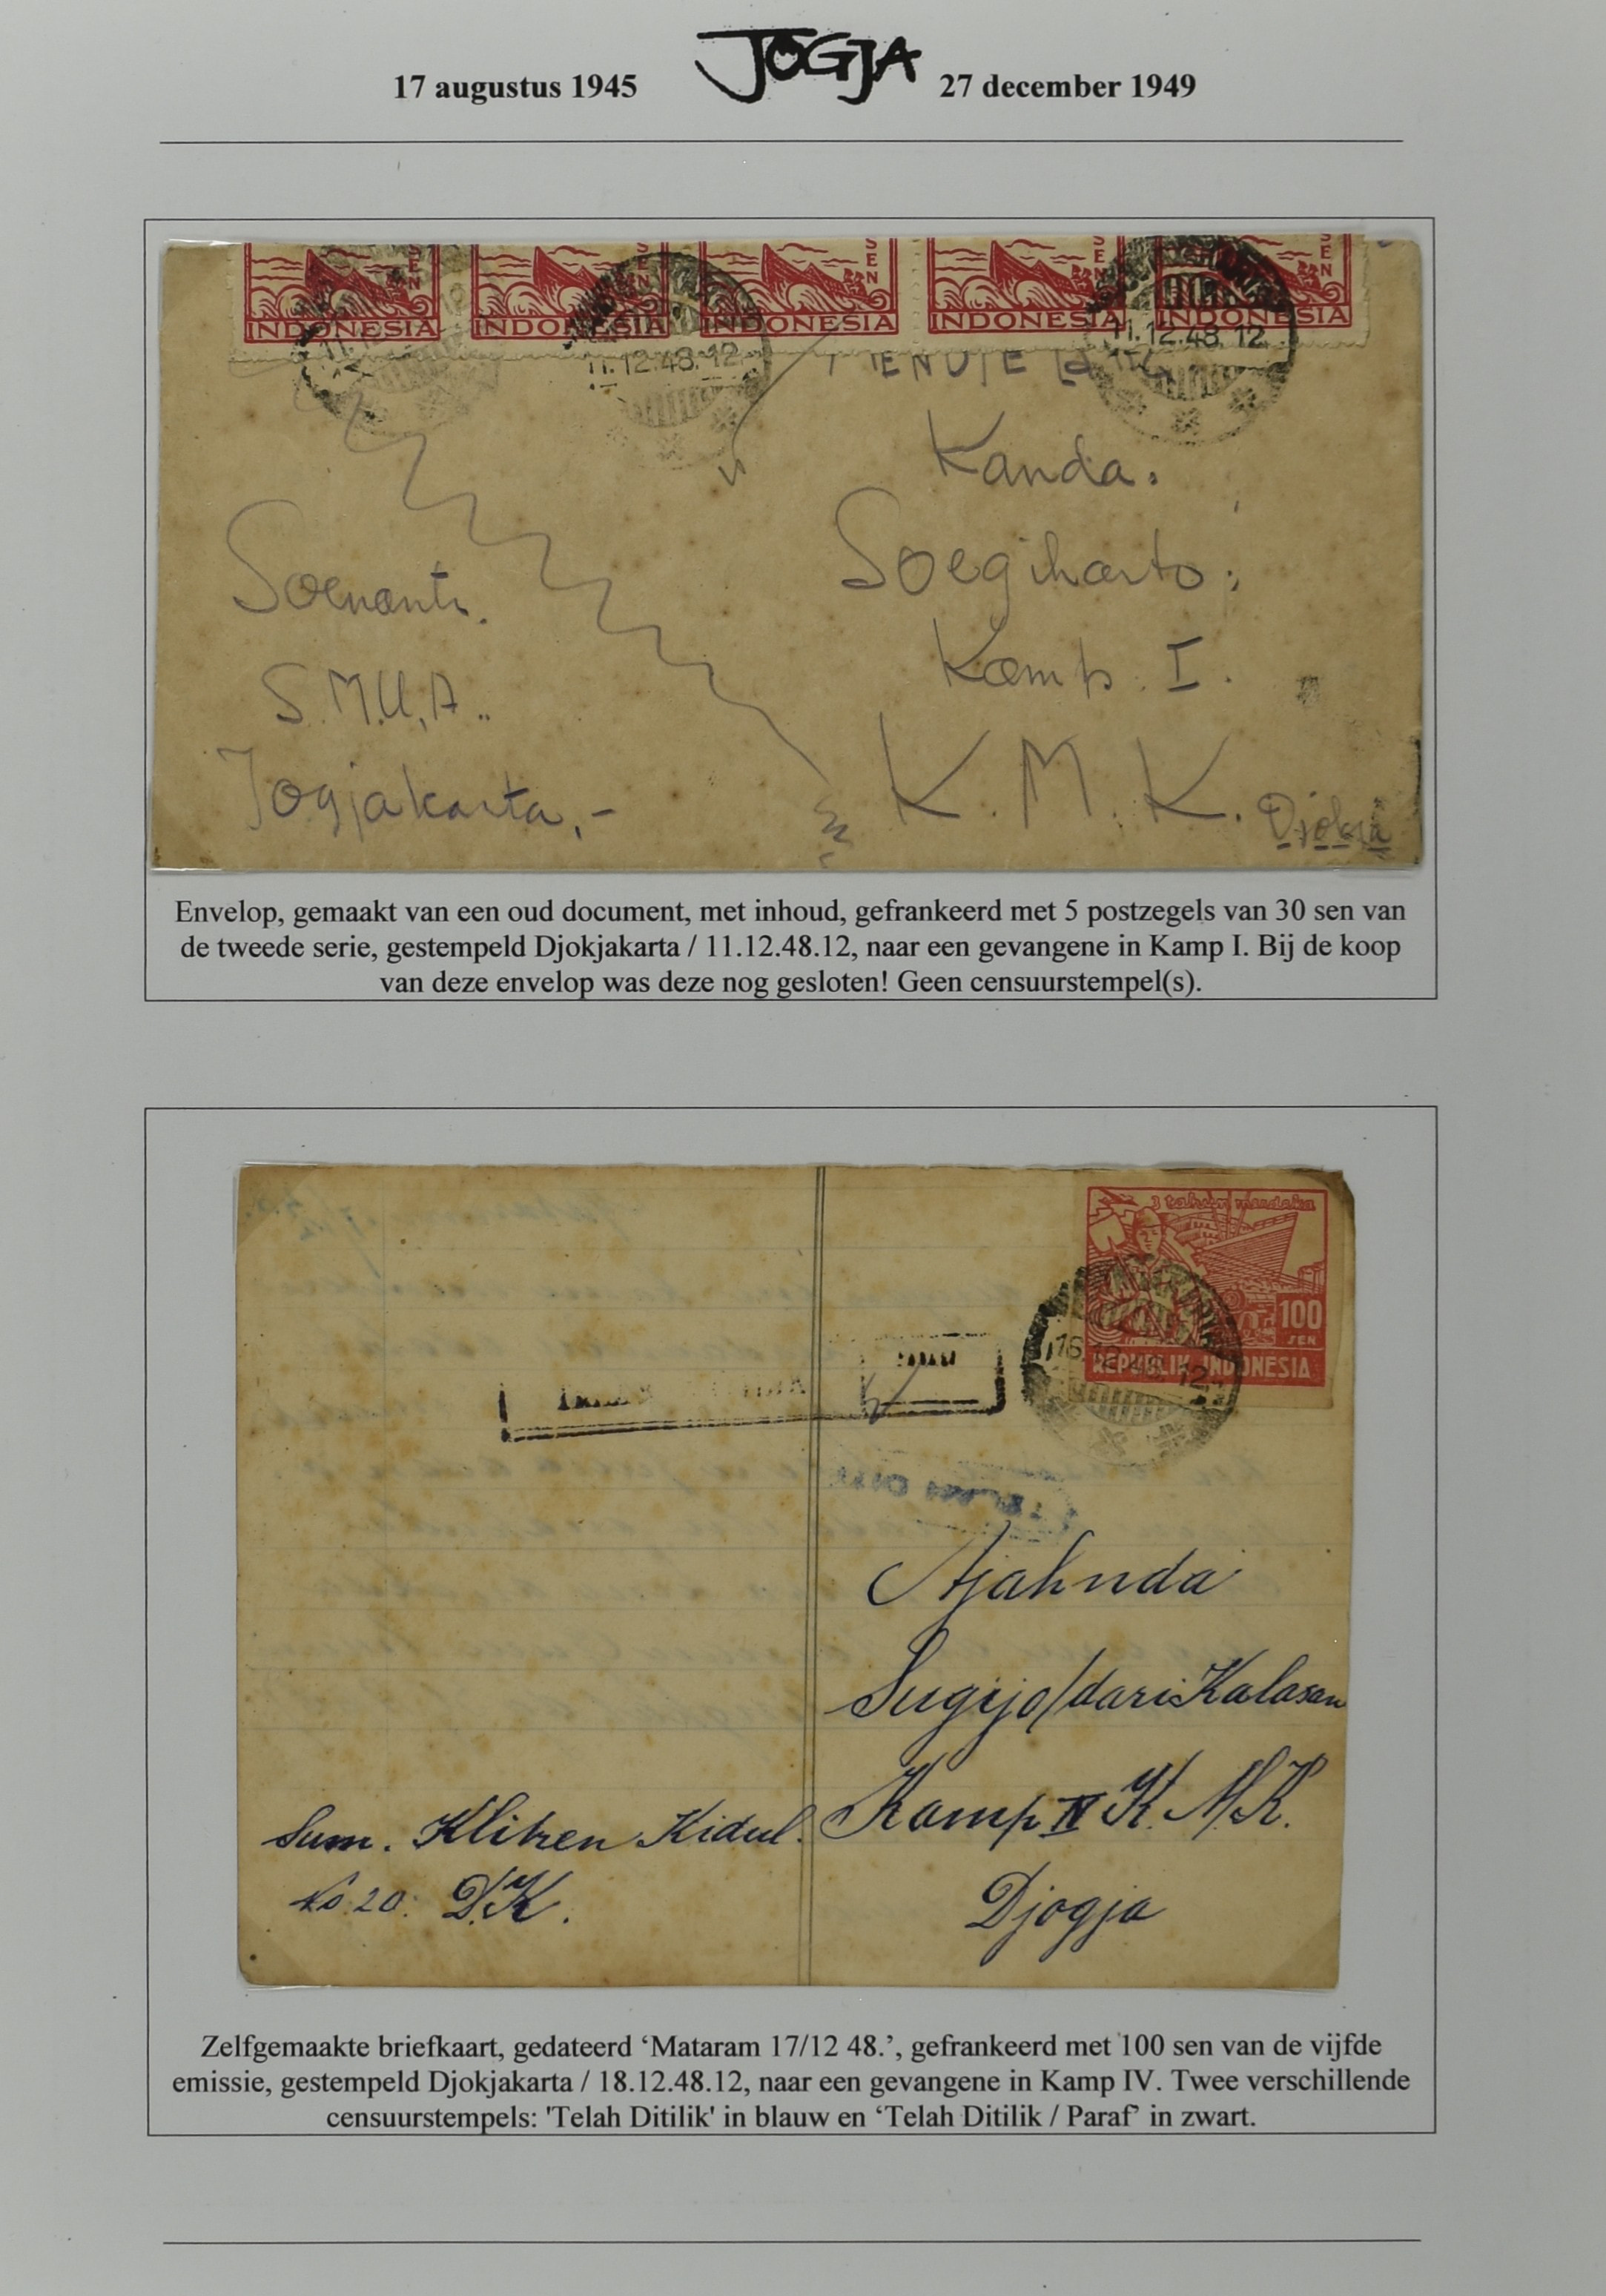 17 augustus 1945 JOGJA 27 december 1949
SEN SEN SEN SEN SEN
INDONESIA INDONESIA INDONESIA INDONESIA INDONESIA
11.12.48.12 11.12.48.12
Kanda.
Soegiharto.
Soenarti.
Kamp. I.
S.M.U.A..
K.M.K. Djokja
Jogjakarta,-
Envelop, gemaakt van een oud document, met inhoud, gefrankeerd met 5 postzegels van 30 sen van
de tweede serie, gestempeld Djokjakarta / 11.12.48.12, naar een gevangene in Kamp I. Bij de koop
van deze envelop was deze nog gesloten! Geen censuurstempel(s).
3 tahun merdeka
100
SEN
REPUBLIK INDONESIA
Ajahnda
Sugijo/dari Kalasan
Kamp IV K.M.K.
Sum. Klitren Kidul.
No 20. D.K.
Djogja
Zelfgemaakte briefkaart, gedateerd ‘Mataram 17/12 48.’, gefrankeerd met 100 sen van de vijfde
emissie, gestempeld Djokjakarta / 18.12.48.12, naar een gevangene in Kamp IV. Twee verschillende
censuurstempels: 'Telah Ditilik' in blauw en ‘Telah Ditilik / Paraf’ in zwart.